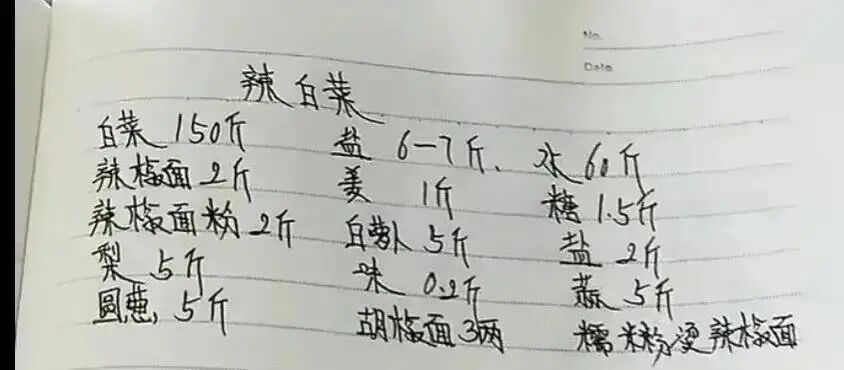 No.
Date
辣白菜
白菜 150斤 盐 6-7斤、水 60斤
辣椒面 2斤 姜 1斤 糖 1.5斤
辣椒面粉 2斤 白萝卜 5斤 盐 2斤
梨 5斤 味 0.2斤 蒜 5斤
圆葱, 5斤 胡椒面 3两 糯米粉烫辣椒面